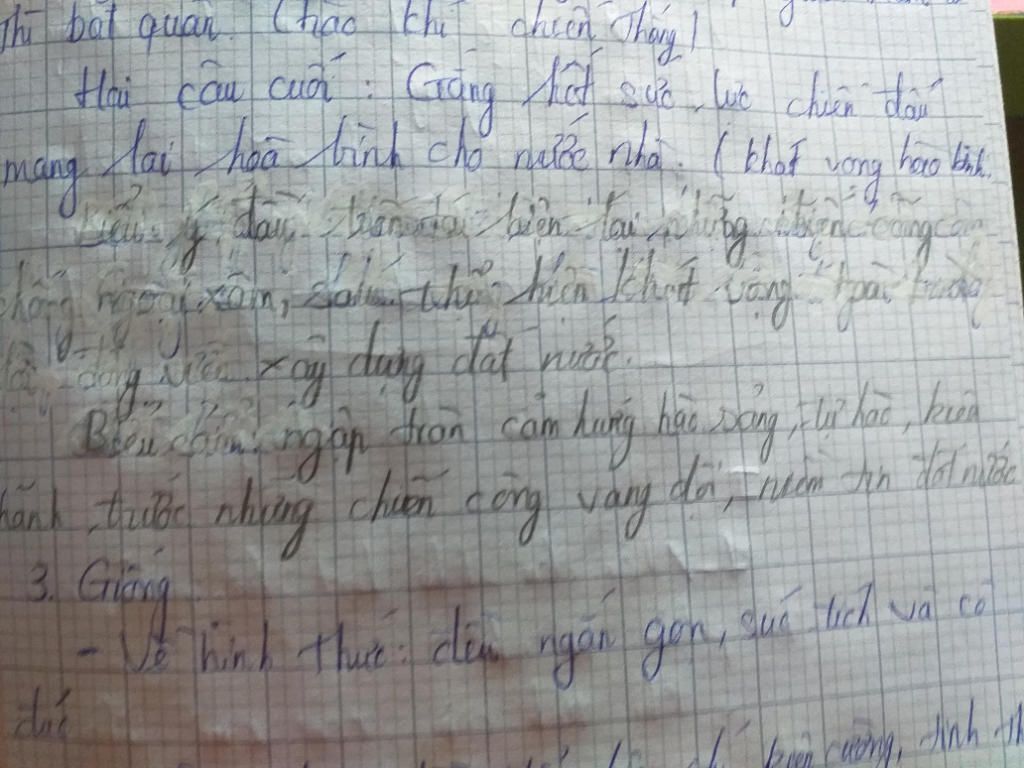 Thì bắt quân. (hào khí chiến thắng)
Hai câu cuối: Gắng hết sức lực chiến đấu
mang lại hoà bình cho nước nhà. (khát vọng hào bình.
Biểu ý: đầu tiên hiện tại những chiến công
chống ngoại xâm, thể hiện khát vọng thái
động viên xây dựng đất nước.
Biểu cảm: ngập tràn cảm hứng hào sảng, tự hào, kiêu
hãnh, trước những chiến công vang dội, niềm tin đất nước
3. Giống
- Về hình thức: đều ngắn gọn, súc tích và cô
đúc
kiên cường, tinh th